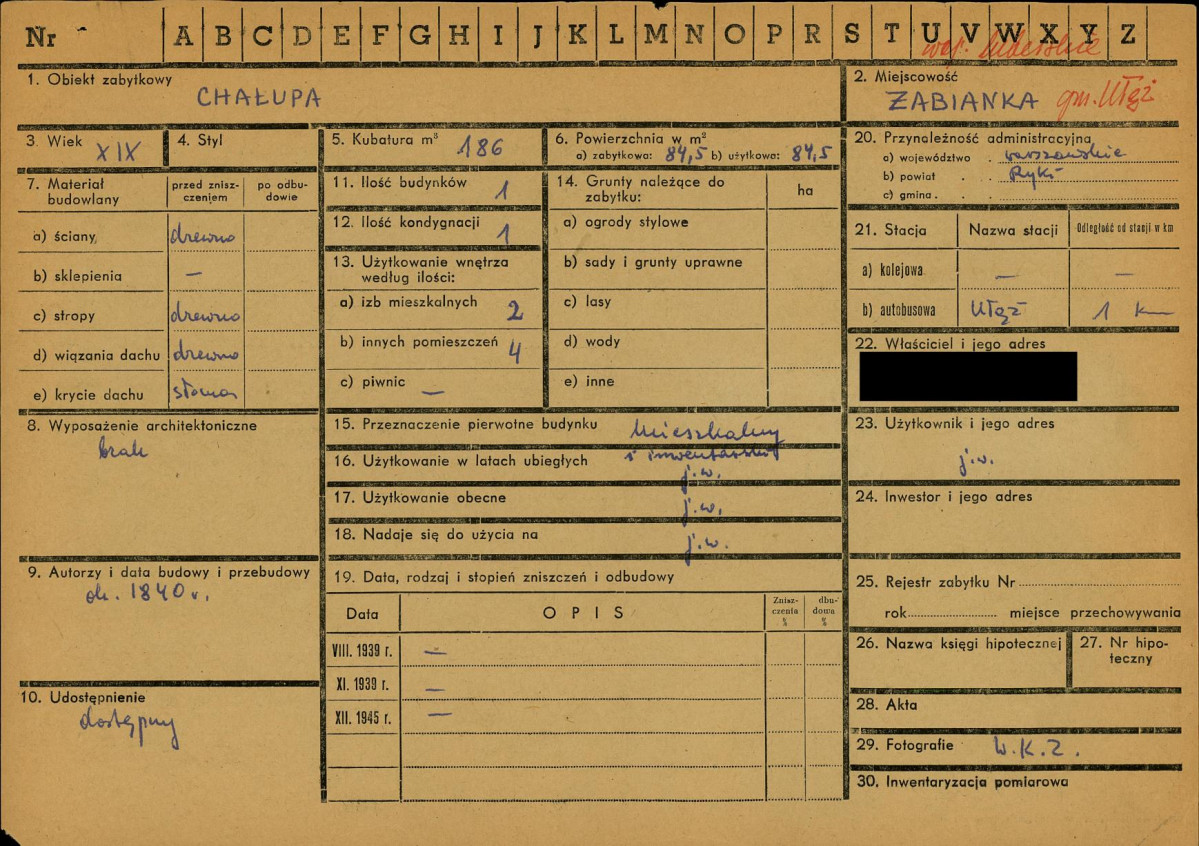 Nr - A B C D E F G H I J K L M N O P R S T U V W X Y Z
woj. lubelskie
1. Obiekt zabytkowy
CHAŁUPA
2. Miejscowość
ZABIANKA gm. Ułęż
3. Wiek XIX
4. Styl
5. Kubatura m³ 186
6. Powierzchnia w m²
a) zabytkowa: 84,5 b) użytkowa: 84,5
20. Przynależność administracyjna
a) województwo . warszawskie
b) powiat . . Ryki
c) gmina . .
7. Materiał budowlany
przed zniszczeniem
po odbudowie
a) ściany drewno
b) sklepienia —
c) stropy drewno
d) wiązania dachu drewno
e) krycie dachu słoma
11. Ilość budynków 1
12. Ilość kondygnacji 1
13. Użytkowanie wnętrza
według ilości:
a) izb mieszkalnych 2
b) innych pomieszczeń 4
c) piwnic —
14. Grunty należące do
zabytku:
ha
a) ogrody stylowe
b) sady i grunty uprawne
c) lasy
d) wody
e) inne
21. Stacja Nazwa stacji Odległość od stacji w km
a) kolejowa — —
b) autobusowa Ułęż 1 km
22. Właściciel i jego adres
8. Wyposażenie architektoniczne
brak
15. Przeznaczenie pierwotne budynku mieszkalny
i inwentarski
16. Użytkowanie w latach ubiegłych j.w.
17. Użytkowanie obecne j.w.
18. Nadaje się do użycia na j.w.
23. Użytkownik i jego adres
j.w.
24. Inwestor i jego adres
9. Autorzy i data budowy i przebudowy
ok. 1840 r.
19. Data, rodzaj i stopień zniszczeń i odbudowy
Data OPIS Zniszczenia % dbudowa %
VIII. 1939 r. —
XI. 1939 r. —
XII. 1945 r. —
10. Udostępnienie
dostępny
25. Rejestr zabytku Nr
rok miejsce przechowywania
26. Nazwa księgi hipotecznej
27. Nr hipoteczny
28. Akta
29. Fotografie W.K.Z.
30. Inwentaryzacja pomiarowa